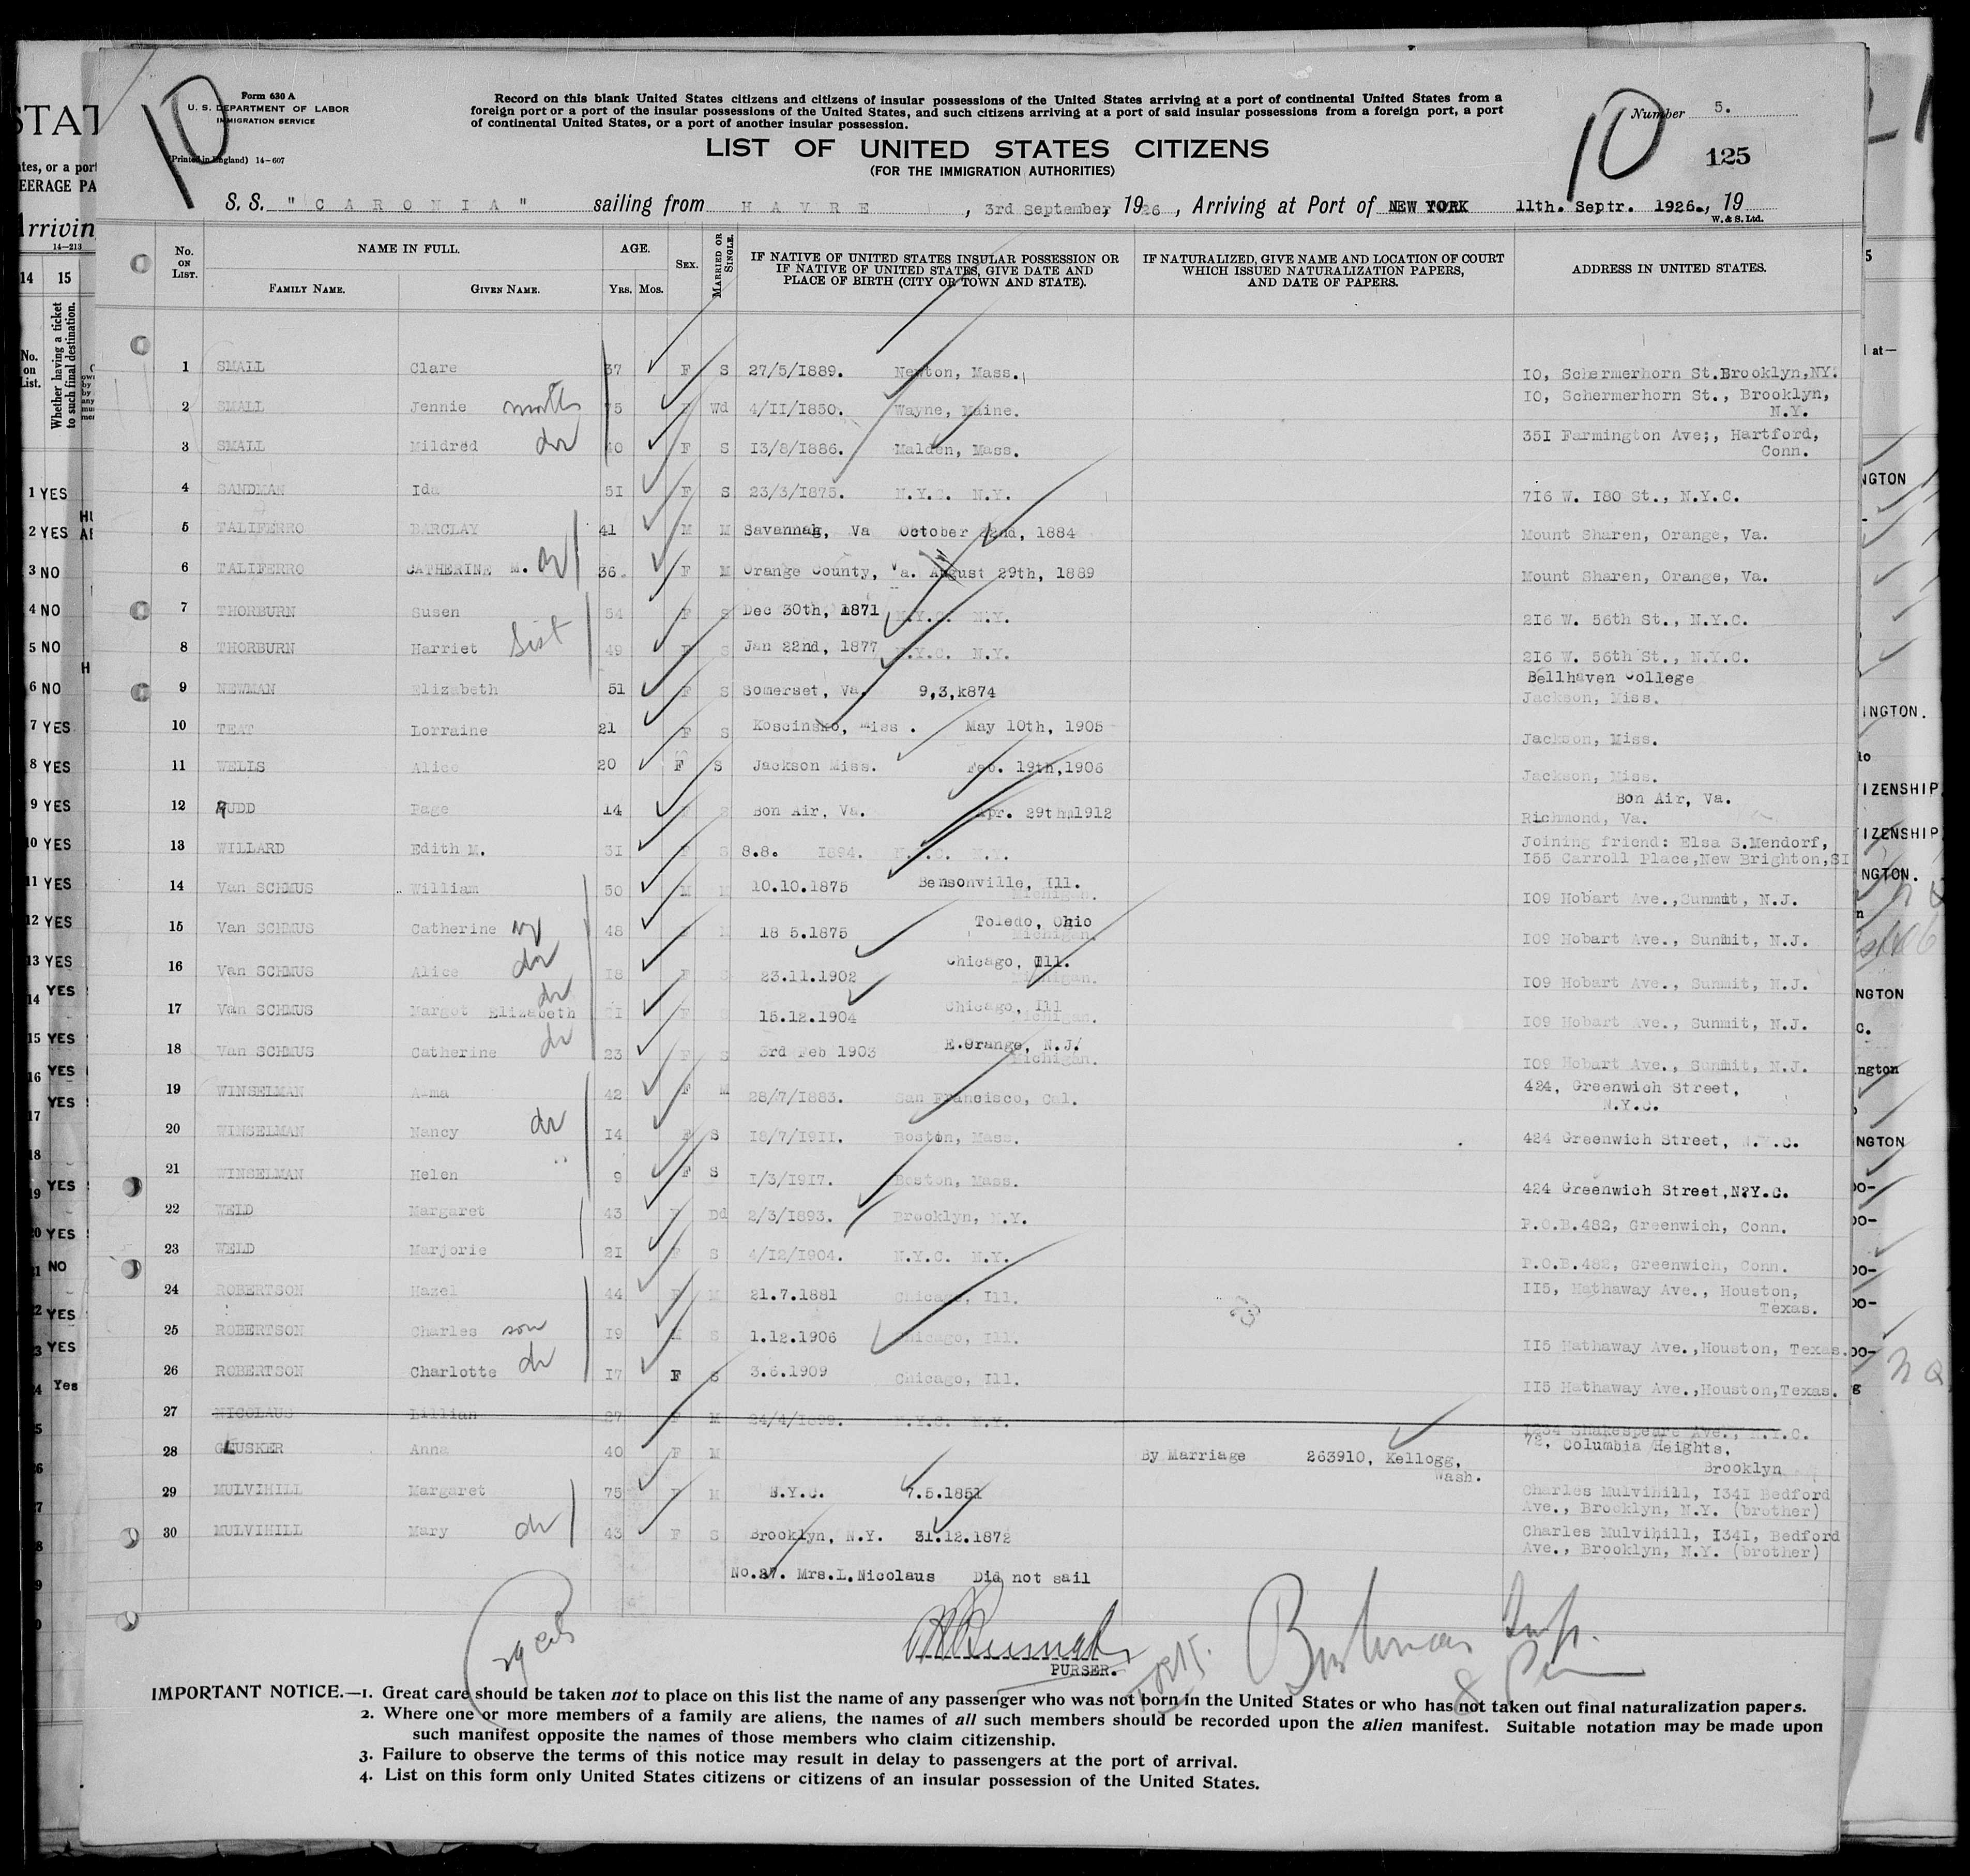 10
Form 630 A
U. S. DEPARTMENT OF LABOR
IMMIGRATION SERVICE
(Printed in England) 14-607
Record on this blank United States citizens and citizens of insular possessions of the United States arriving at a port of continental United States from a
foreign port or a port of the insular possessions of the United States, and such citizens arriving at a port of said insular possessions from a foreign port, a port
of continental United States, or a port of another insular possession.
10
Number 5.
125
LIST OF UNITED STATES CITIZENS
(FOR THE IMMIGRATION AUTHORITIES)
S. S. " C A R O N I A " sailing from H A V R E , 3rd September, 1926, Arriving at Port of NEW YORK 11th. Septr. 1926., 19
W. & S. Ltd.
No. ON LIST. NAME IN FULL. FAMILY NAME. GIVEN NAME. AGE. YRS. MOS. SEX. MARRIED OR SINGLE.
IF NATIVE OF UNITED STATES INSULAR POSSESSION OR
IF NATIVE OF UNITED STATES, GIVE DATE AND
PLACE OF BIRTH (CITY OR TOWN AND STATE).
IF NATURALIZED, GIVE NAME AND LOCATION OF COURT
WHICH ISSUED NATURALIZATION PAPERS,
AND DATE OF PAPERS.
ADDRESS IN UNITED STATES.
1 SMALL Clare 37 F S 27/5/1889. Newton, Mass. 10, Schermerhorn St.Brooklyn,NY.
2 SMALL Jennie moth 75 F Wd 4/11/1850. Wayne, Maine. 10, Schermerhorn St., Brooklyn,
N.Y.
3 SMALL Mildred dr 40 F S 13/8/1886. Malden, Mass. 351 Farmington Ave;, Hartford,
Conn.
4 SANDMAN Ida 51 F S 23/3/1875. N.Y.C. N.Y. 716 W. 180 St., N.Y.C.
5 TALIFERRO BARCLAY 41 M M Savannah, Va October 22nd, 1884 Mount Sharen, Orange, Va.
6 TALIFERRO CATHERINE M. 36. F M Orange County, Va. August 29th, 1889 Mount Sharen, Orange, Va.
7 THORBURN Susen 54 F S Dec 30th, 1871 N.Y.C. N.Y. 216 W. 56th St., N.Y.C.
8 THORBURN Harriet Sist 49 F S Jan 22nd, 1877 N.Y.C. N.Y. 216 W. 56th St., N.Y.C.
9 NEWMAN Elizabeth 51 F S Somerset, Va. 9,3,k874 Bellhaven College
Jackson, Miss.
10 TEAT Lorraine 21 F S Koscinsko, Miss . May 10th, 1905 Jackson, Miss.
11 WELLS Alice 20 F S Jackson Miss. Feb. 19th,1906 Jackson, Miss.
12 RUDD Page 14 F S Bon Air, Va. Apr. 29thm1912 Bon Air, Va.
Richmond, Va.
13 WILLARD Edith M. 31 F S 8.8. 1894. N.Y.C. N.Y. Joining friend: Elsa S.Mendorf,
155 Carroll Place,New Brighton,SI
14 Van SCHMUS William 50 M M 10.10.1875 Bensonville, Ill. Michigan. 109 Hobart Ave.,Summit, N.J.
15 Van SCHMUS Catherine 48 F M 18 5.1875 Toledo, Ohio Michigan. 109 Hobart Ave., Summit, N.J.
16 Van SCHMUS Alice dr 18 F S 23.11.1902 Chicago, Ill. Michigan. 109 Hobart Ave., Summit, N.J.
17 Van SCHMUS Margot Elizabeth dr 21 F S 15.12.1904 Chicago, Ill Michigan. 109 Hobart Ave., Summit, N.J.
18 Van SCHMUS Catherine dr 23 F S 3rd Feb 1903 E.Orange, N.J. Michigan. 109 Hobart Ave., Summit, N.J.
19 WINSELMAN Alma 42 F M 28/7/1883. San Francisco, Cal. 424, Greenwich Street,
N.Y.C.
20 WINSELMAN Nancy dr 14 F S 18/7/1911. Boston, Mass. 424 Greenwich Street, N.Y.C.
21 WINSELMAN Helen 9 F S 1/3/1917. Boston, Mass. 424 Greenwich Street,N?Y.C.
22 WELD Margaret 43 F Dd 2/3/1893. Brooklyn, N.Y. P.O.B.482, Greenwich, Conn.
23 WELD Marjorie 21 F S 4/12/1904. N.Y.C. N.Y. P.O.B.482, Greenwich, Conn.
24 ROBERTSON Hazel 44 F M 21.7.1881 Chicago, Ill. 115, Hathaway Ave., Houston,
Texas.
25 ROBERTSON Charles son 19 M S 1.12.1906 Chicago, Ill. 115 Hathaway Ave.,Houston, Texas.
26 ROBERTSON Charlotte dr 17 F S 3.6.1909 Chicago, Ill. 115 Hathaway Ave.,Houston,Texas.
27 NICOLAUS Lillian 27 F M 24/4/1899. N.Y.C. N.Y. Shakespeare Ave., N.Y.C.
28 GLUSKER Anna 40 F M By Marriage 263910, Kellogg,
Wash. 72, Columbia Heights,
Brooklyn
29 MULVIHILL Margaret 75 F M N.Y.C. 7.5.1851 Charles Mulvihill, 1341 Bedford
Ave., Brooklyn, N.Y. (brother)
30 MULVIHILL Mary dr 43 F S Brooklyn, N.Y. 31.12.1872 Charles Mulvihill, 1341, Bedford
Ave., Brooklyn, N.Y. (brother)
No.27. Mrs.L.Nicolaus Did not sail
PURSER.
IMPORTANT NOTICE.—1. Great care should be taken not to place on this list the name of any passenger who was not born in the United States or who has not taken out final naturalization papers.
2. Where one or more members of a family are aliens, the names of all such members should be recorded upon the alien manifest. Suitable notation may be made upon
such manifest opposite the names of those members who claim citizenship.
3. Failure to observe the terms of this notice may result in delay to passengers at the port of arrival.
4. List on this form only United States citizens or citizens of an insular possession of the United States.